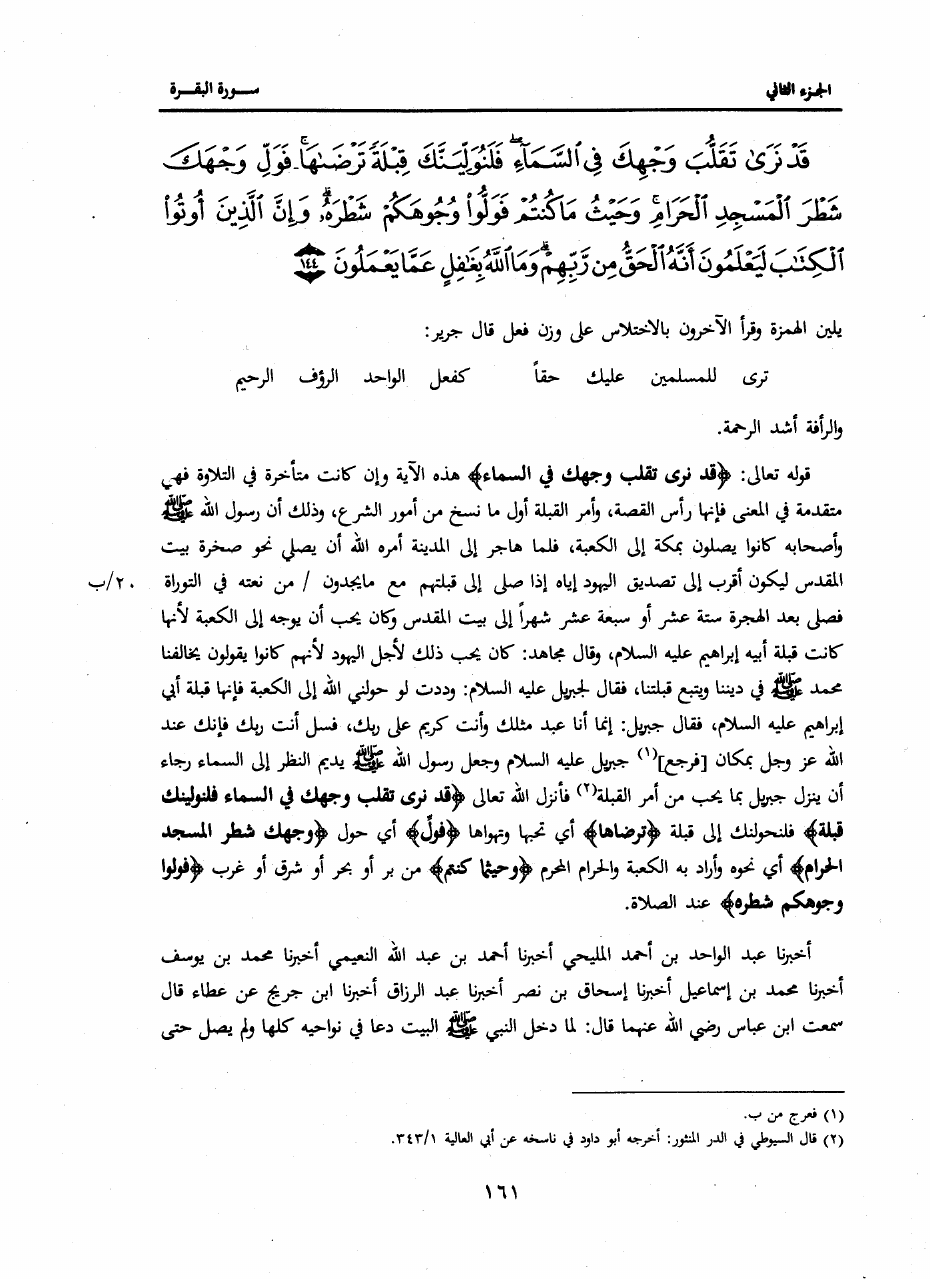 الجزء الثاني
سورة البقرة
قَدْ نَرَىٰ تَقَلُّبَ وَجْهِكَ فِي ٱلسَّمَآءِۖ فَلَنُوَلِّيَنَّكَ قِبْلَةً تَرْضَىٰهَاۚ فَوَلِّ وَجْهَكَ
شَطْرَ ٱلْمَسْجِدِ ٱلْحَرَامِۚ وَحَيْثُ مَا كُنتُمْ فَوَلُّوا۟ وُجُوهَكُمْ شَطْرَهُۥۗ وَإِنَّ ٱلَّذِينَ أُوتُوا۟
ٱلْكِتَٰبَ لَيَعْلَمُونَ أَنَّهُ ٱلْحَقُّ مِن رَّبِّهِمْۗ وَمَا ٱللَّهُ بِغَٰفِلٍ عَمَّا يَعْمَلُونَ ١٤٤
يلين الهمزة وقرأ الآخرون بالاختلاس على وزن فعل قال جرير:
ترى للمسلمين عليك حقاً كفعل الواحد الرؤف الرحيم
والرأفة أشد الرحمة.
قوله تعالى: ﴿قد نرى تقلب وجهك في السماء﴾ هذه الآية وإن كانت متأخرة في التلاوة فهي
متقدمة في المعنى فإنها رأس القصة، وأمر القبلة أول ما نسخ من أمور الشرع، وذلك أن رسول الله ﷺ
وأصحابه كانوا يصلون بمكة إلى الكعبة، فلما هاجر إلى المدينة أمره الله أن يصلي نحو صخرة بيت
المقدس ليكون أقرب إلى تصديق اليهود إياه إذا صلى إلى قبلتهم مع مايجدون / من نعته في التوراة ٢٠/ب
فصلى بعد الهجرة ستة عشر أو سبعة عشر شهراً إلى بيت المقدس وكان يحب أن يوجه إلى الكعبة لأنها
كانت قبلة أبيه إبراهيم عليه السلام، وقال مجاهد: كان يحب ذلك لأجل اليهود لأنهم كانوا يقولون يخالفنا
محمد ﷺ في ديننا ويتبع قبلتنا، فقال لجبريل عليه السلام: وددت لو حولني الله إلى الكعبة فإنها قبلة أبي
إبراهيم عليه السلام، فقال جبريل: إنما أنا عبد مثلك وأنت كريم على ربك، فسل أنت ربك فإنك عند
الله عز وجل بمكان [فرجع](١) جبريل عليه السلام وجعل رسول الله ﷺ يديم النظر إلى السماء رجاء
أن ينزل جبريل بما يحب من أمر القبلة(٢) فأنزل الله تعالى ﴿قد نرى تقلب وجهك في السماء فلنولينك
قبلة﴾ فلنحولنك إلى قبلة ﴿ترضاها﴾ أي تحبها وتهواها ﴿فولِّ﴾ أي حول ﴿وجهك شطر المسجد
الحرام﴾ أي نحوه وأراد به الكعبة والحرام المحرم ﴿وحيثما كنتم﴾ من بر أو بحر أو شرق أو غرب ﴿فولوا
وجوهكم شطره﴾ عند الصلاة.
أخبرنا عبد الواحد بن أحمد المليحي أخبرنا أحمد بن عبد الله النعيمي أخبرنا محمد بن يوسف
أخبرنا محمد بن إسماعيل أخبرنا إسحاق بن نصر أخبرنا عبد الرزاق أخبرنا ابن جريج عن عطاء قال
سمعت ابن عباس رضي الله عنهما قال: لما دخل النبي ﷺ البيت دعا في نواحيه كلها ولم يصل حتى
(١) فعرج من ب.
(٢) قال السيوطي في الدر المنثور: أخرجه أبو داود في ناسخه عن أبي العالية ٣٤٣/١.
١٦١